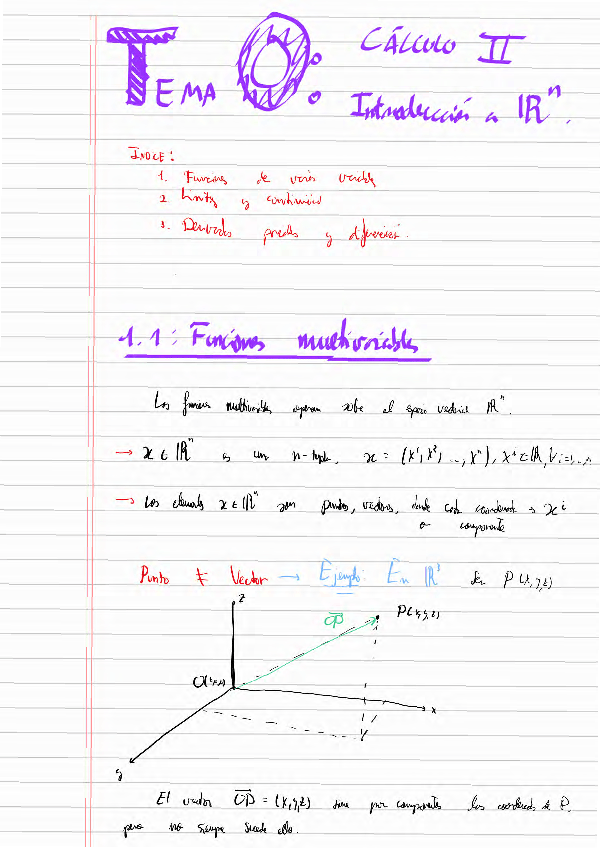 TEMA 0: CÁLCULO II
Introducción a ℝⁿ.
ÍNDICE:
1. Funciones de varias variables
2. Límites y continuidad
3. Derivadas parciales y diferencial.
1.1: Funciones multivariables
Las funciones multivariables operan sobre el espacio vectorial ℝⁿ.
→ x ∈ ℝⁿ es un n-tupla, x = (x¹, x², ..., xⁿ), xⁱ ∈ ℝ, ∀i=1,...,n
→ Los elementos x ∈ ℝⁿ son puntos, vectores, donde cada coordenada es xⁱ
o componente
Punto ≠ Vector → Ejemplo: En ℝ³ Sea P(x,y,z)
z
OP
P(x,y,z)
x
y
El vector OP = (x,y,z) tiene por componentes las coordenadas de P.
pero no siempre sucede ello.